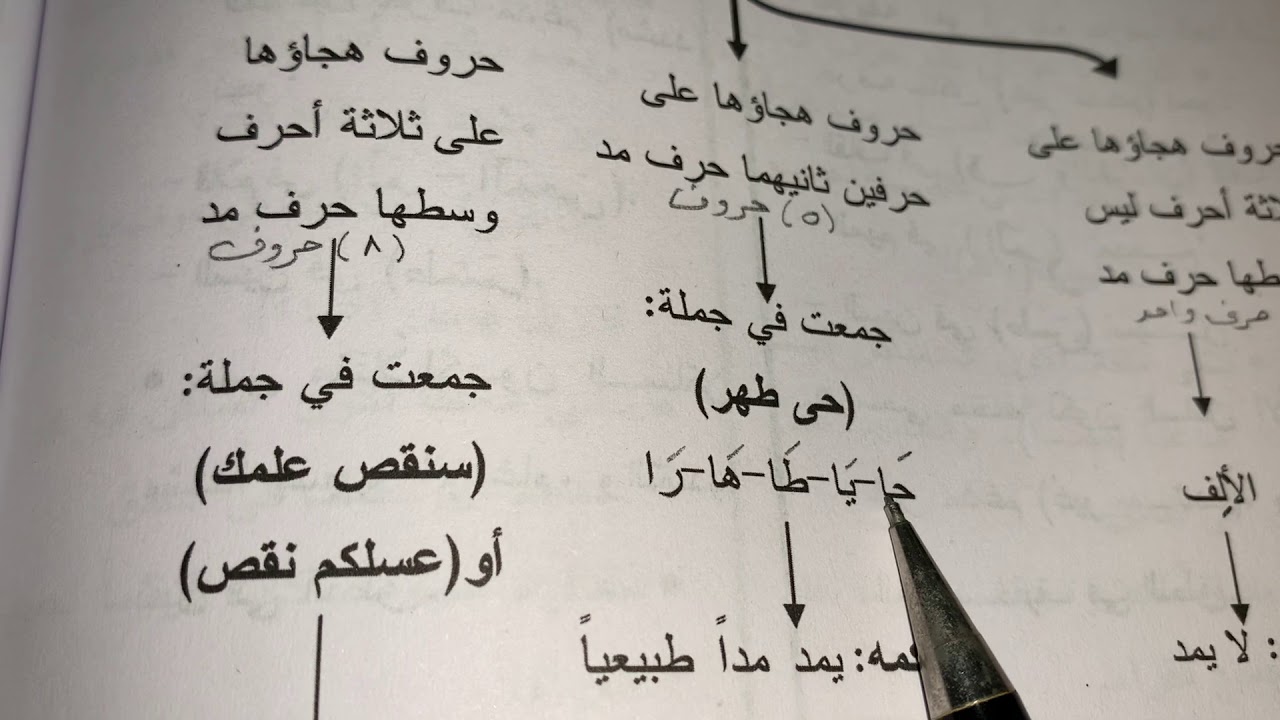 حروف هجاؤها على
ثة أحرف ليس
طها حرف مد
حرف واحد
الألِف
: لا يمد
حروف هجاؤها على
حرفين ثانيهما حرف مد
(٥) حروف
جمعت في جملة:
(حى طهر)
حَا-يَا-طَا-هَا-رَا
مه: يمد مداً طبيعياً
حروف هجاؤها
على ثلاثة أحرف
وسطها حرف مد
(٨) حروف
جمعت في جملة:
(سنقص علمك)
أو(عسلكم نقص)